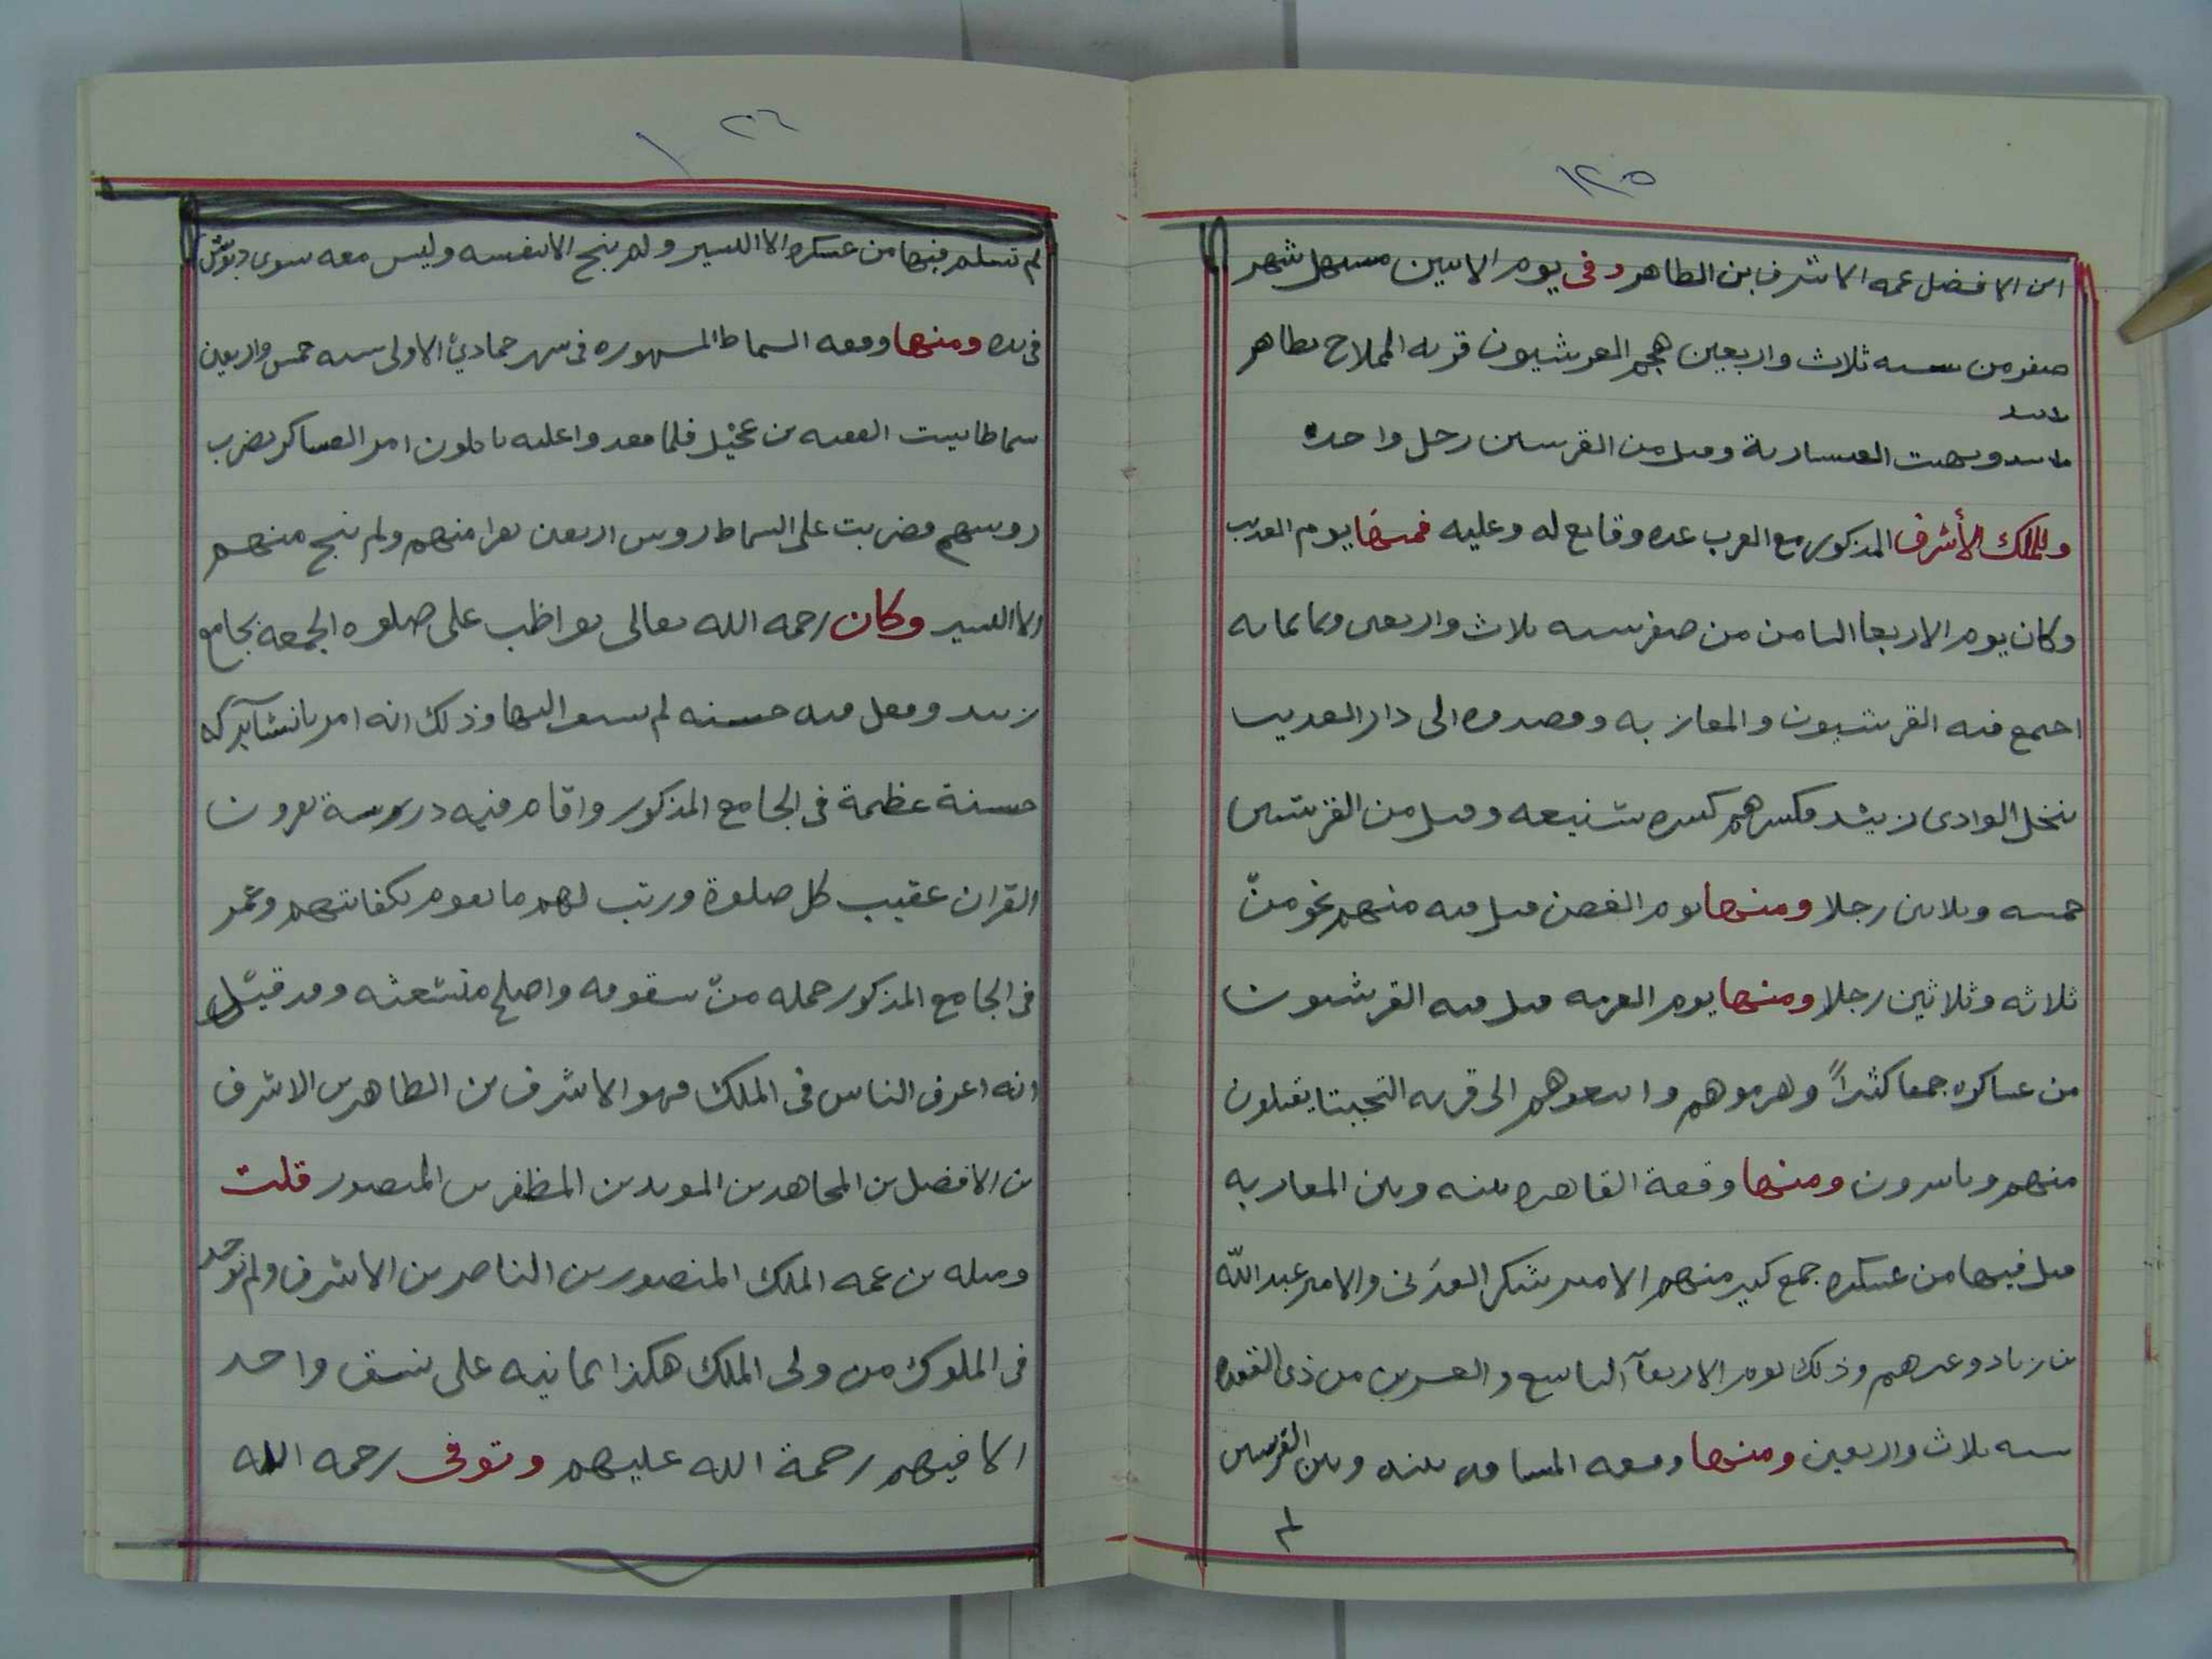 ١٢٥
ابن الافضل عمه الاشرف بن الظاهر وفى يوم الاثنين مستهل شهر
صفر من سنه ثلاث واربعين هجم القرشيون قريه المملاح بظاهر
زبيد
زبيد ونهبت العسارية وقتل من القرشيين رجل واحد
وللملك الأشرف المذكور مع العرب عده وقايع له وعليه فمنها يوم العديب
وكان يوم الاربعا الثامن من صفر سنه ثلاث واربعين وثمانمايه
اجتمع فيه القرشيون والمعازبه وقصدوه الى دار العديب
بنخل الوادى زبيد فكسرهم كسره شنيعه وقتل من القرشيين
خمسه وثلاثين رجلا ومنها يوم الغصن قتل فيه منهم نحو من
ثلاثه وثلاثين رجلا ومنها يوم العرمه قتل فيه القرشيون
من عساكره جمعا كثيراً وهزموهم واتبعوهم الى قريه التحيتا يقتلون
منهم وياسرون ومنها وقعة القاهره بينه وبين المعازبه
قتل فيها من عسكره جمع كبير منهم الامير شكر العدنى والامير عبد الله
بن زياد وغيرهم وذلك يوم الاربعآ التاسع والعشرين من ذى القعده
سنه ثلاث واربعين ومنها وقعه المسا بينه وبين القرشيين
لم
١٢٦
لم تسلم فيها من عسكره الا اليسير ولم ينج الا بنفسه وليس معه سوى دبوس
فى يده ومنها وقعه السماط المشهوره فى شهر جمادي الاولى سنه خمس واربعين
سماطا ببيت الفقيه بن عجيل فلما قعدوا عليه ياكلون امر العساكر بضرب
روسهم فضربت على السماط روس اربعين نفرا منهم ولم ينج منهم
الا اليسير وكان رحمه الله تعالى يواظب على صلوه الجمعه بجامع
زبيد وفعل فيه حسنه لم يسبق اليها وذلك انه امر بانشآ بركه
حسنة عظيمة فى الجامع المذكور واقام فيه درسة يقرون
القران عقيب كل صلوة ورتب لهم ما يقوم بكفايتهم وعمر
فى الجامع المذكور جمله من سقوفه واصلح متشعثه وقد قيل
انه اعرق الناس فى الملك فهو الاشرف بن الظاهر بن الاشرف
بن الافضل بن المجاهد بن المويد بن المظفر بن المنصور قلت
ومثله بن عمه الملك المنصور بن الناصر بن الاشرف ولم يوجد
فى الملوك من ولى الملك هكذا ثمانيه على نسق واحد
الا فيهم رحمة الله عليهم وتوفى رحمه الله